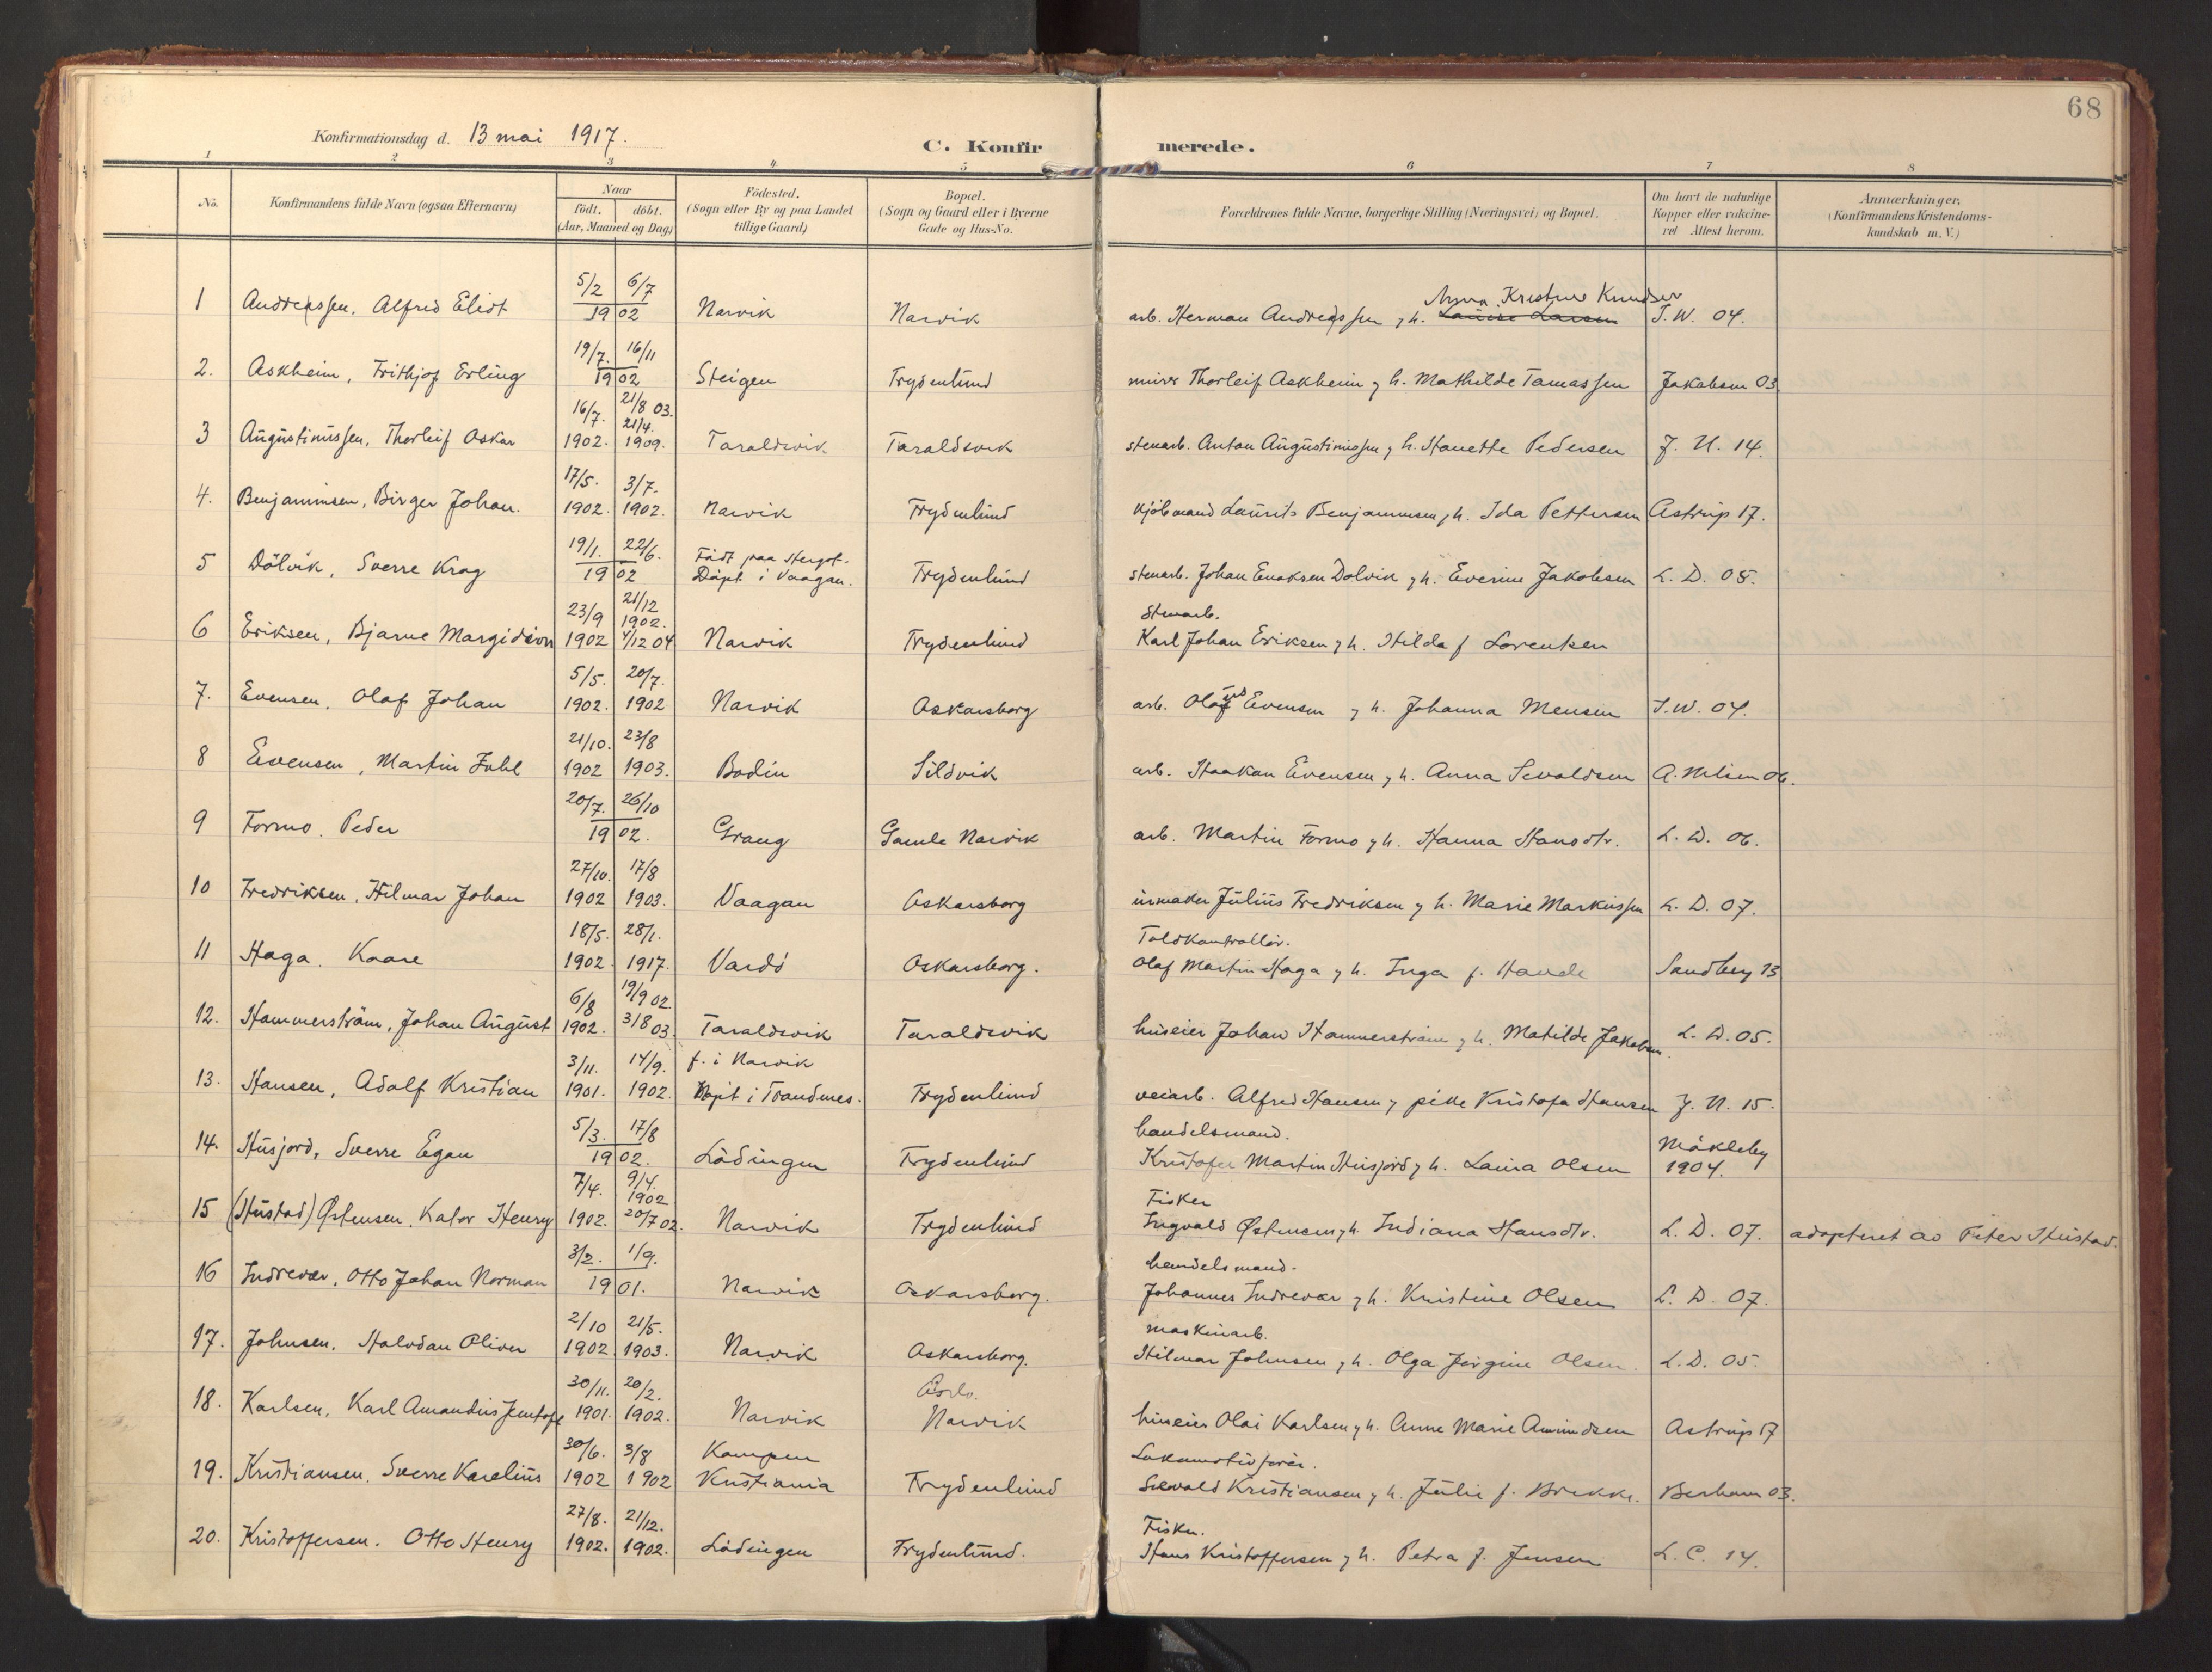 68
Konfirmationsdag d. 13 mai 1917.
C. Konfirmerede.
1 2 3 4 5 6 7 8
No.
Konfirmandens fulde Navn (ogsaa Efternavn)
Naar
født. døbt.
(Aar, Maaned og Dag)
Födested.
(Sogn eller By og paa Landet
tillige Gaard)
Bopæl.
(Sogn og Gaard eller i Byerne
Gade og Hus-No.
Forældrenes fulde Navne, borgerlige Stilling (Næringsvei) og Bopæl.
Om havt de naturlige
Kopper eller vakcine-
ret Attest herom.
Anmærkninger,
(Konfirmandens Kristendoms-
kundskab m. V.)
5/2 6/7
Anna Kristine Knudsen
1 Andreassen, Alfred Eliot 1902 Narvik Narvik arb. Herman Andreassen & h. Louise Larsen J. W. 04.
19/7. 16/11
2. Askheim, Frithjof Erling 1902 Steigen Frydenlund murer Thorleif Askheim & h. Mathilde Tomassen Jakobsen 03.
16/7. 21/8 03.
21/4.
3 Augustinussen, Thorleif Oskar 1902. 1909. Taraldsvik Taraldsvik stenarb. Anton Augustinussen & h. Hanette Pedersen J. N. 14.
17/5. 3/7.
4. Benjaminsen, Birger Johan. 1902. 1902. Narvik Frydenlund kjöbmand Laurits Benjaminsen & h. Ida Pettersen Astrup 17.
19/1. 22/6. Född paa
5 Dölvik, Sverre Krog 1902 Döpt i Vaagan. Frydenlund stenarb. Johan Enoksen Dolvik & h. Everine Jakobsen L. D. 05.
23/9 21/12
1902.
stenarb.
6 Eriksen, Bjarne Margido 1902 4/12 04 Narvik Frydenlund Karl Johan Eriksen & h. Hilda f Lorentsen
5/5. 20/7.
7. Evensen, Olaf Johan 1902. 1902 Narvik Oskarsborg arb. Evensen & h. Johanna Mensen J. W. 04.
21/10. 23/8
8 Evensen, Martin Juhl 1902 1903. Bodin Sildvik arb. Haakon Evensen & h. Anna Sevaldsen A. Nilsen 06.
20/7. 26/10
9 Formo. Peder 1902. Grong Gamle Narvik arb. Martin Formo & h. Hanna Hansdtr. L. D. 06.
27/10. 17/8
10 Fredriksen, Hilmar Johan 1902 1903. Vaagan Oskarsborg urmaker Julius Fredriksen & h. Marie Markussen L. D. 07.
18/5. 28/1.
Toldkontrollör.
11 Haga. Kaare 1902. 1917. Vardö Oskarsborg. Olaf Martin Haga & h. Inga f. Hande Sandberg 13
6/8 19/9 02.
12. Hammerström, Johan August 1902. 3/8 03. Taraldsvik Taraldsvik huseier Johan Hammerström & h. Matilde Jakobsen. L. D. 05.
3/11. 14/9. f. i Narvik
13. Hansen, Adolf Kristian 1901. 1902. Döpt i Trondenes. Frydenlund veiarb. Alfred Hansen & pike Kristofa Hansen J. N. 15.
5/3. 17/8
handelsmand.
14. Husjord, Sverre Egan 1902. Lödingen Frydenlund Kristofer Martin Husjord & h. Laura Olsen Mökleby 1904.
7/4. 9/4.
1902
Fisker
15 (Hustad) Østensen. Kator Henry 1902. 20/7 02. Narvik Frydenlund Ingvald Østensen & h. Indiana Hansdtr. L. D. 07. adopteret av Peter Hustad.
3/2. 1/9.
handelsmand.
16 Indrevær, Otto Johan Norman 1901. Narvik Oskarsborg. Johannes Indrevær & h. Kristine Olsen L. D. 07.
2/10 21/5.
maskinarb.
17. Johnsen. Halvdan Oliver 1902 1903. Narvik Oskarsborg. Hilmar Johnsen & h. Olga Jörgine Olsen. L. D. 05.
30/11. 20/2.
18. Karlsen. Karl Amandus Jentoft 1901. 1902. Narvik Narvik huseier Olai Karlsen & h. Anne Marie Amundsen Astrup 17
30/6. 3/8 Kampen
Lokomotivförer.
19. Kristiansen. Sverre Karelius 1902 1902 Kristiania Frydenlund Sevald Kristiansen & h. Julie f. Brekke. Berham 03.
27/8. 21/12.
Fisker.
20. Kristoffersen. Otto Henry 1902. 1902. Lödingen Frydenlund. Hans Kristoffersen & h. Petra f. Jensen L. C. 14.